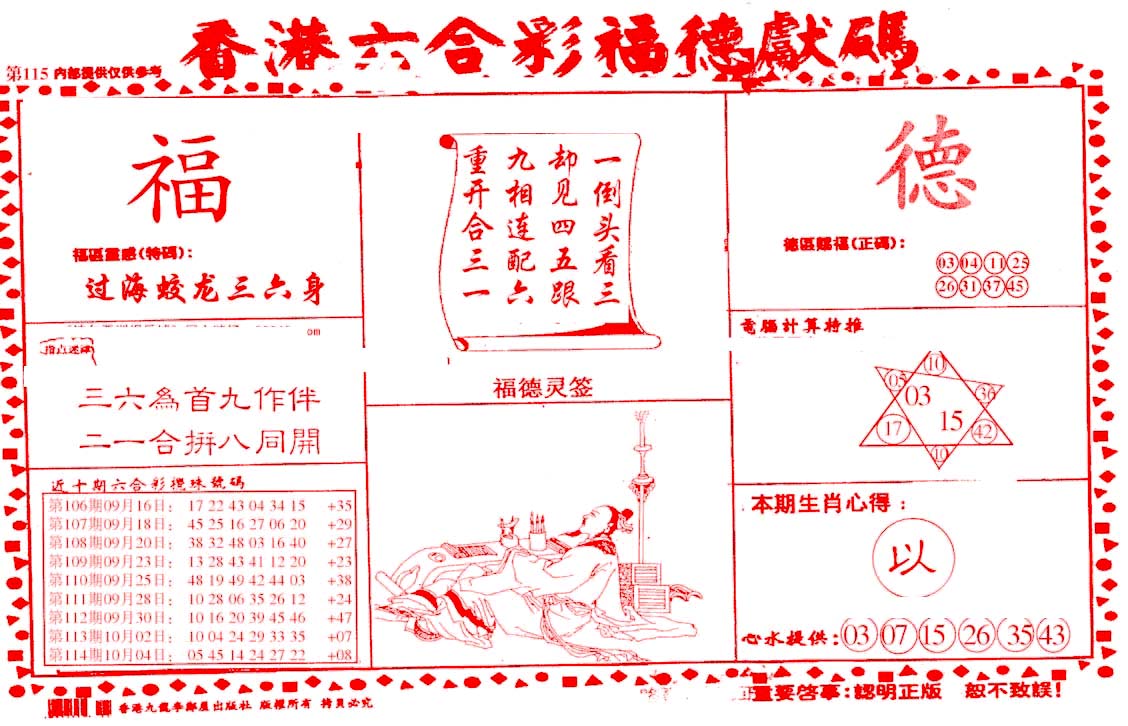 香港六合彩福德獻碼
第115 内部提供仅供参考
福
福區靈感(特碼)：
过海蛟龙三六身
om
指点迷津
三六為首九作伴
二一合拼八同開
近十期六合彩攪珠號碼
第106期09月16日： 17 22 43 04 34 15 +35
第107期09月18日： 45 25 16 27 06 20 +29
第108期09月20日： 38 32 48 03 16 40 +27
第109期09月23日： 13 28 43 41 12 20 +23
第110期09月25日： 48 19 49 42 44 03 +38
第111期09月28日： 10 28 06 35 26 12 +24
第112期09月30日： 10 16 20 39 45 46 +47
第113期10月02日： 10 04 24 29 33 35 +07
第114期10月04日： 05 45 14 24 27 22 +08
一倒头看三
却见四五跟
九相连配六
重开合三一
福德灵签
德
德區賜福(正碼)：
03 04 11 25
26 31 37 45
電腦計算特推
10
05 03 36
17 15 42
10
本期生肖心得：
以
心水提供：03 07 15 26 35 43
香港九龍李鄭屋出版社 版權所有 拷貝必究
重要啓事：認明正版 恕不致誤！